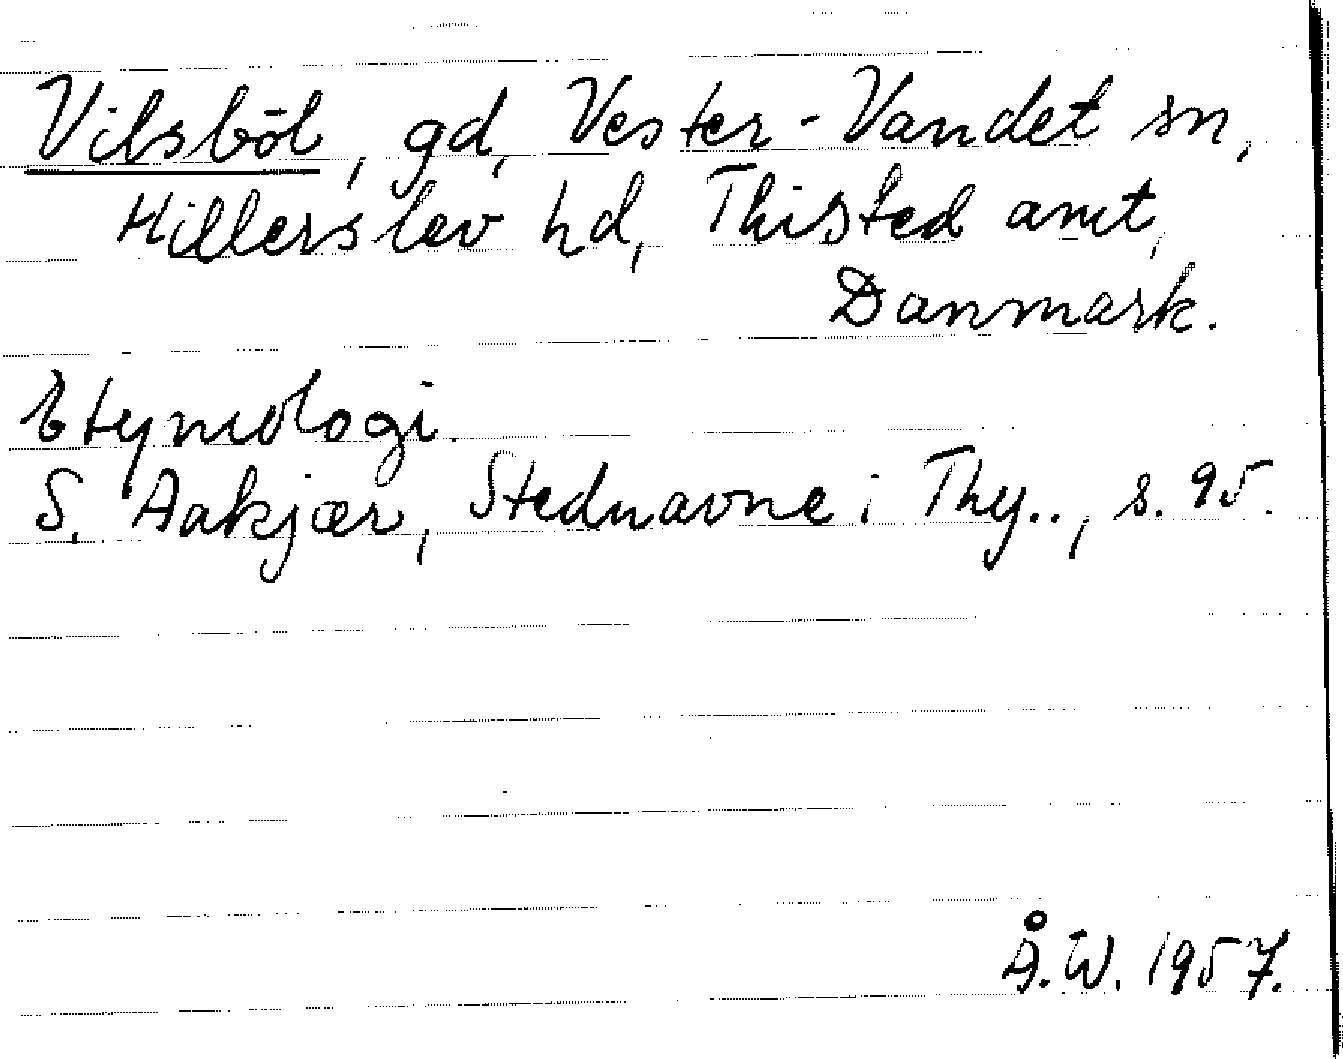 Vilsböl, gd, Vester-Vandet sn,
Hillerslev hd, Thisted amt,
Danmark.
Etymologi.
S. Aakjær, Stednavne i Thy.., s. 95.
Å.W. 1957.